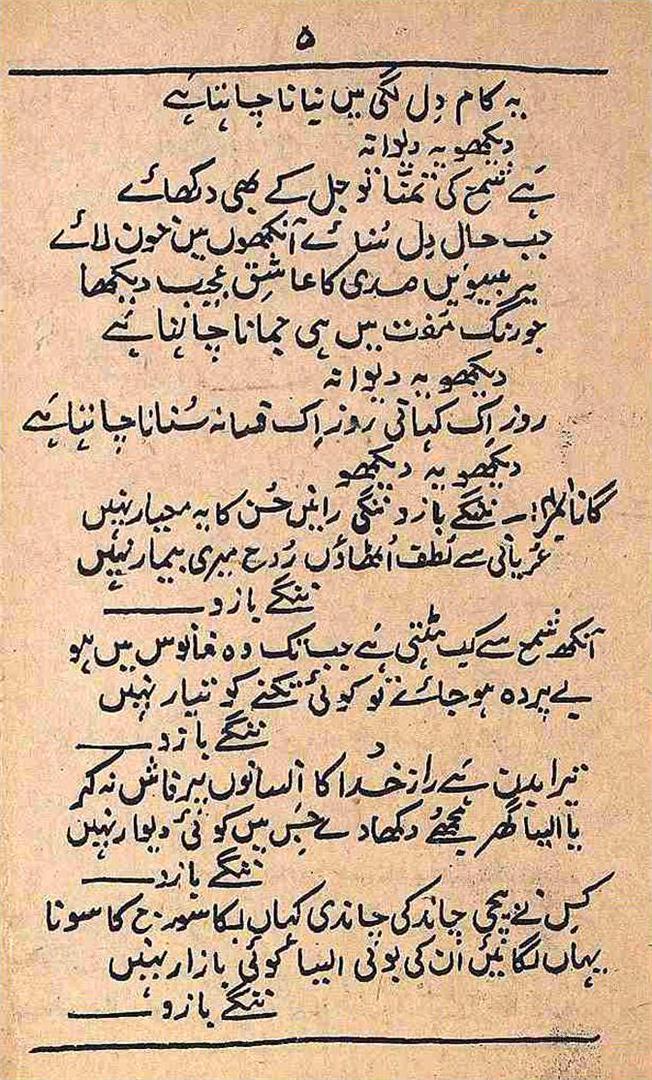 ۵
یہ کام دِل لگی میں نپانا چاہتا ہے
دیکھو یہ دیوانہ
ہے شمع کی تمنّا تو جل کے بھی دکھائے
جب حال دِل سُنائے آنکھوں میں خون لائے
بیسویں صدی کا عاشِق عجیب دیکھا
جو رنگ مفت میں ہی جمانا چاہتا ہے
دیکھو یہ دیوانہ
روز اِک کہانی روز اِک فسانہ سُنانا چاہتا ہے
دیکھو یہ دیکھو
گانا :۔ ننگے بازو ننگی رانیں حُسن کا یہ معیار نہیں
عُریانی سے لُطف اُٹھاؤں رُوح میری بیمار نہیں
ننگے بازو ———
آنکھ شمع سے کب ہٹتی ہے جب تک وہ فانوس میں ہو
بے پردہ ہو جائے تو کوئی تکنے کو تیار نہیں
ننگے بازو ———
تیرا بدن ہے راز خُدا کا اِنسانوں پر فاش نہ کر
یا ایسا گھر مجھے دکھا دے جس میں کوئی دیوار نہیں
ننگے بازو ———
کِس نے بیچی چاند کی چاندی کہاں بِکا سورج کا سونا
یہاں لگائیں اُن کی بولی ایسا کوئی بازار نہیں
ننگے بازو ———